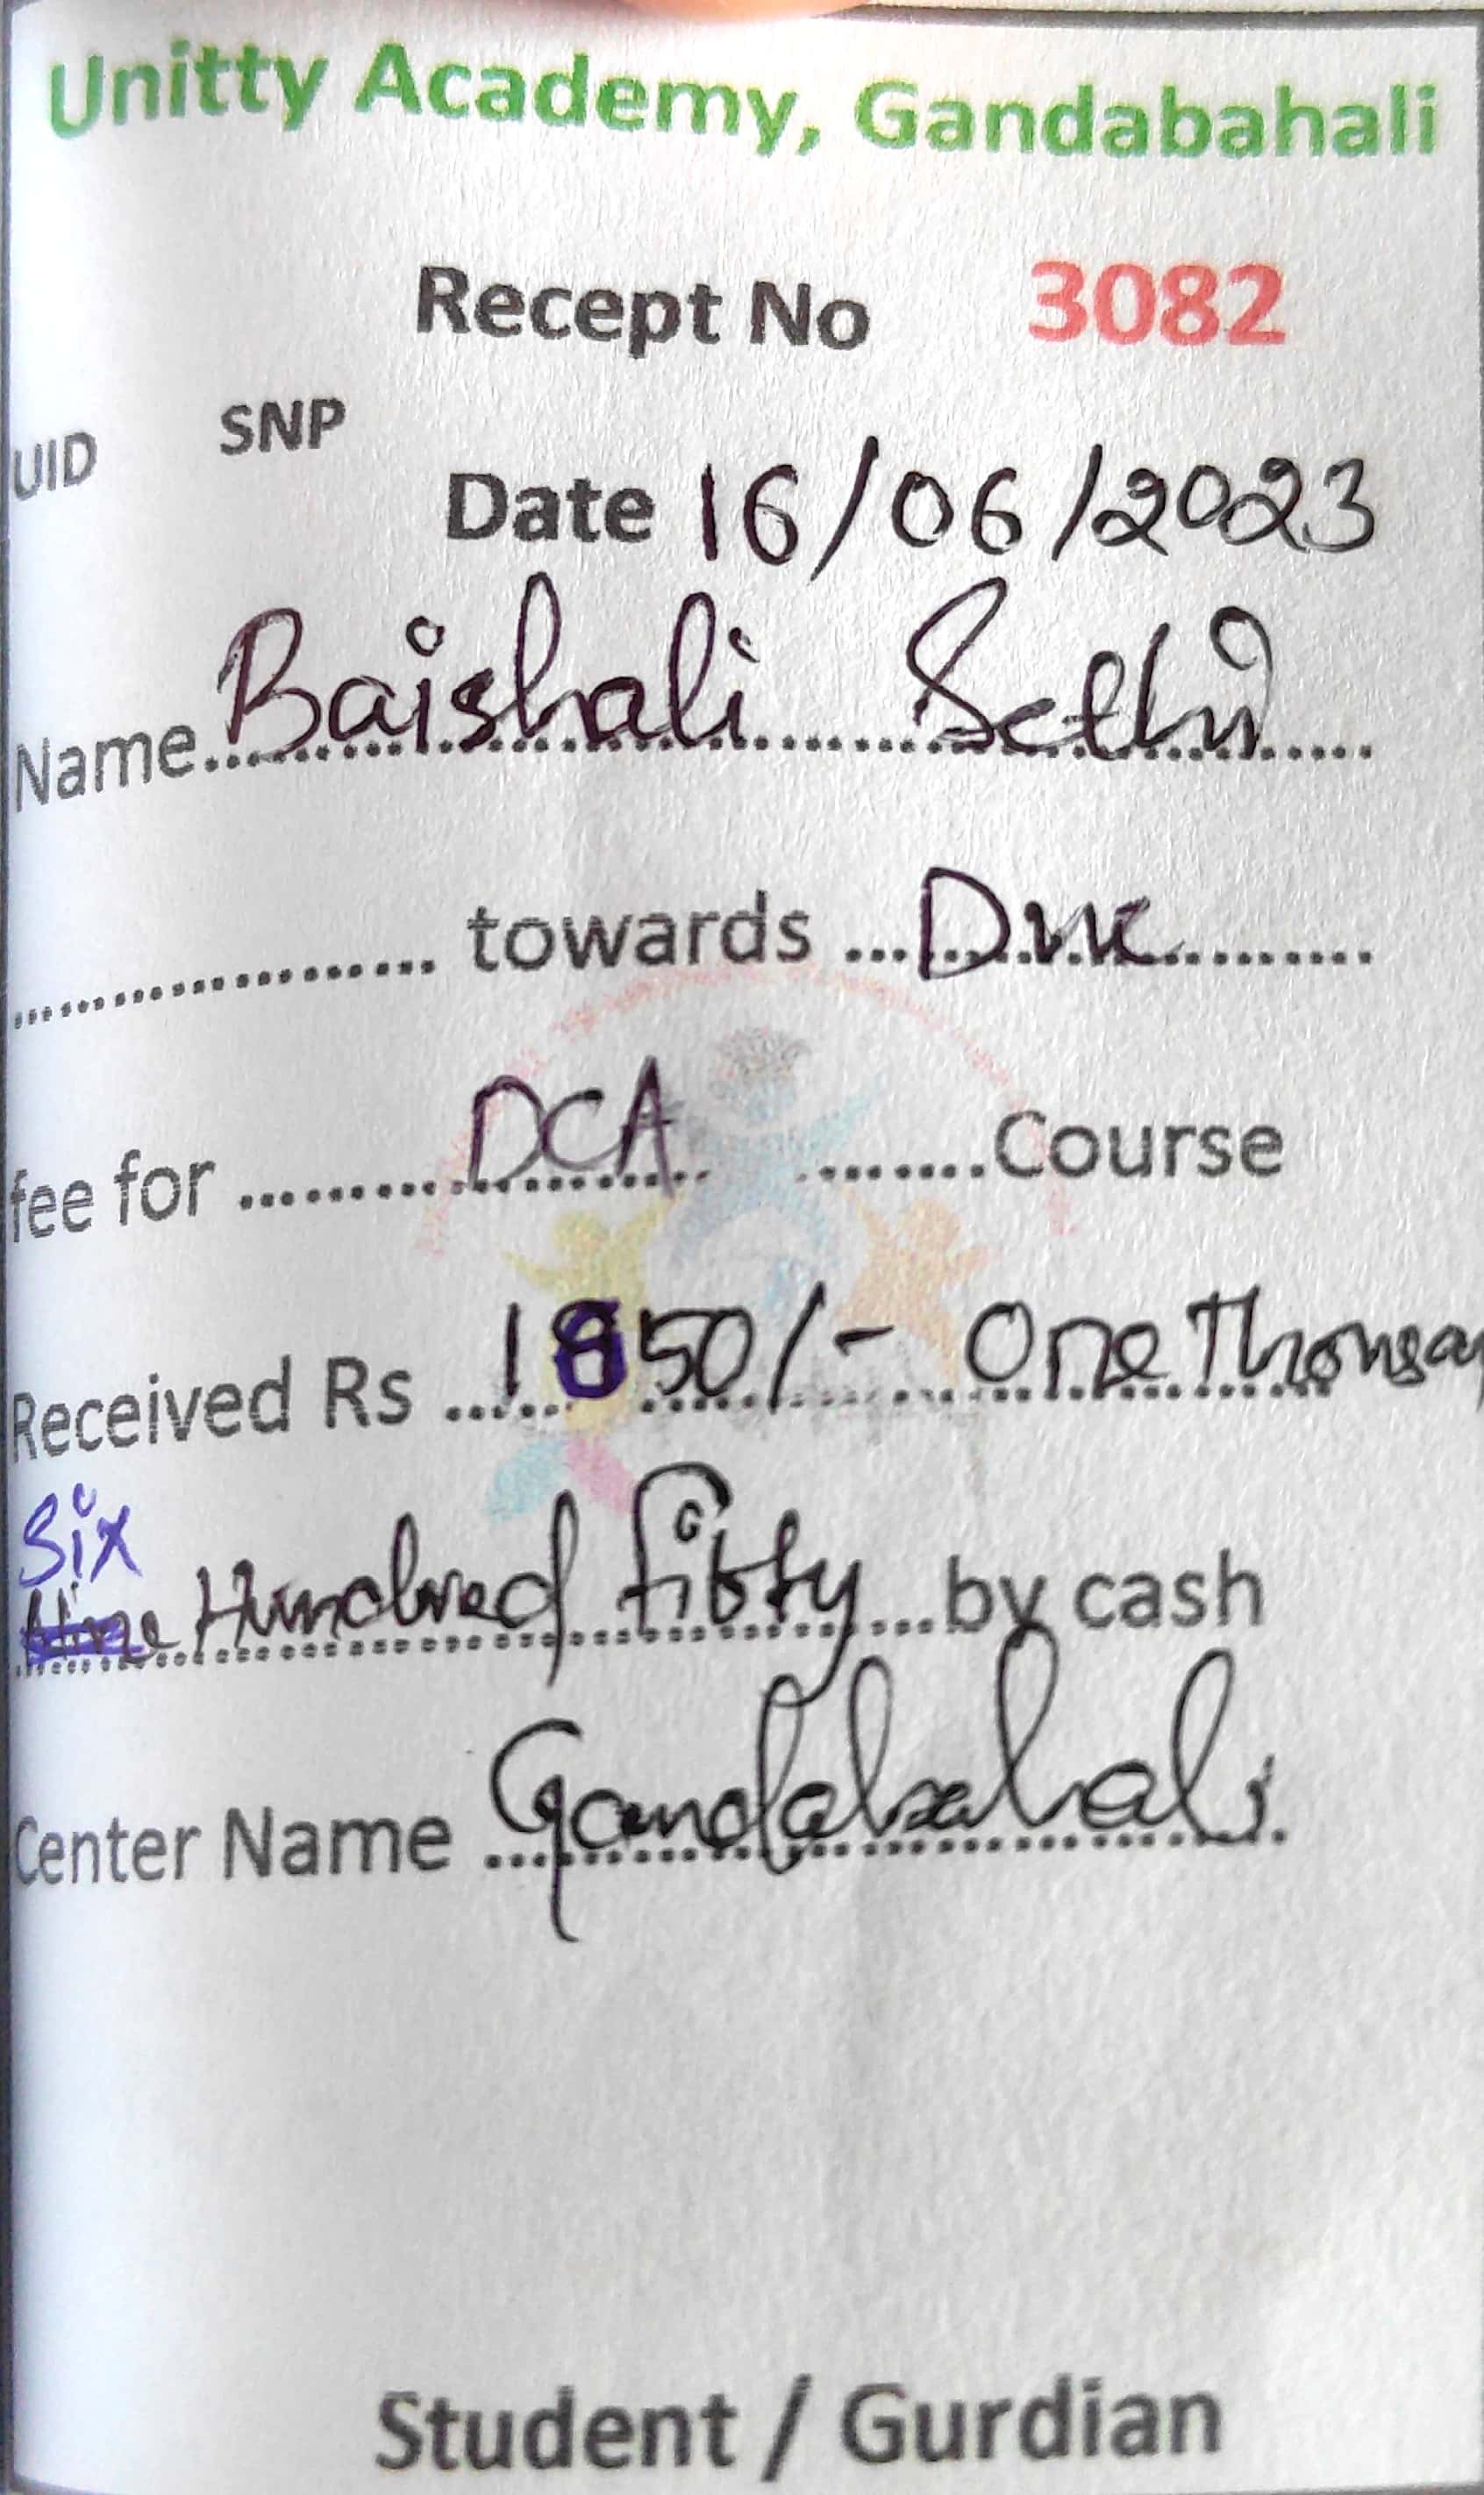 Unitty Academy, Gandabahali
Recept No 3082
UID SNP
Date 16/06/2023
Name Baishali Sethi
towards Due
fee for DCA Course
Received Rs 1650/- One Thousa
Six
Nine Hundred fifty by cash
Center Name Gandabahali
Student / Gurdian